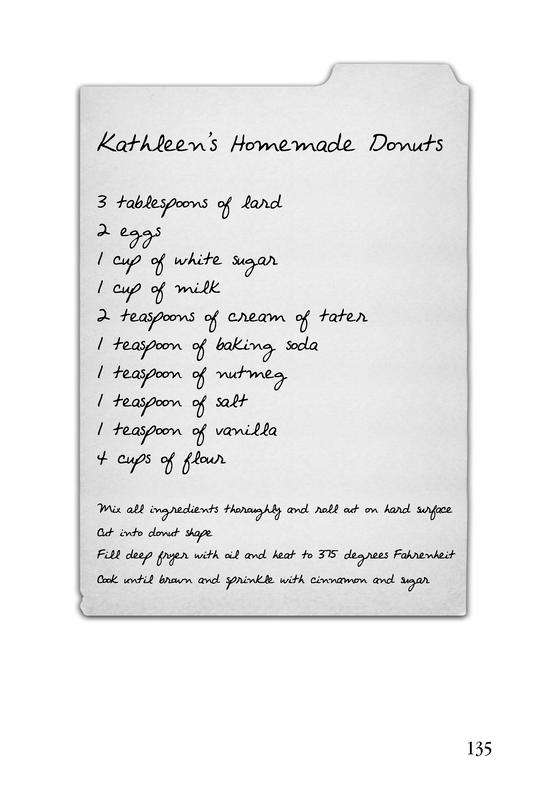 Kathleen's Homemade Donuts
3 tablespoons of lard
2 eggs
1 cup of white sugar
1 cup of milk
2 teaspoons of cream of tater
1 teaspoon of baking soda
1 teaspoon of nutmeg
1 teaspoon of salt
1 teaspoon of vanilla
4 cups of flour
Mix all ingredients thoroughly and roll out on hard surface
Cut into donut shape
Fill deep fryer with oil and heat to 375 degrees Fahrenheit
Cook until brown and sprinkle with cinnamon and sugar
135